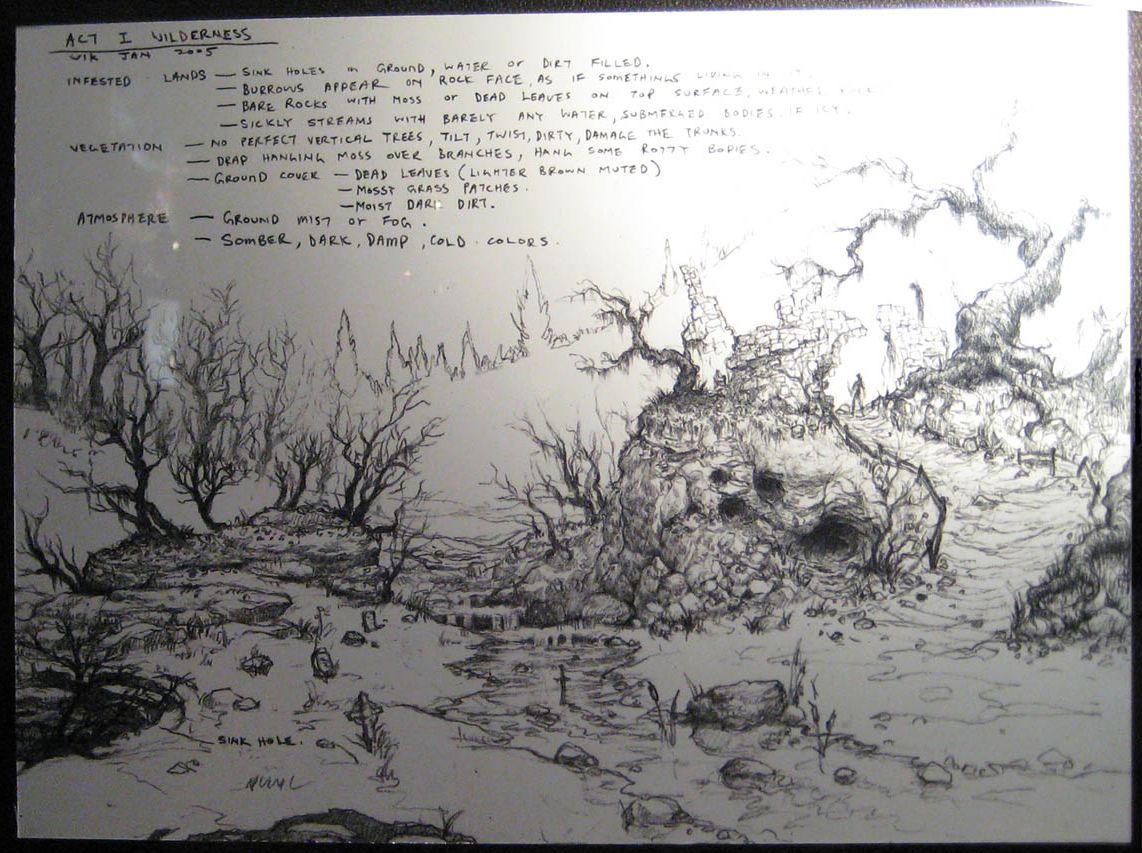 ACT I WILDERNESS
VIK JAN 2005
INFESTED LANDS — SINK HOLES IN GROUND, WATER OR DIRT FILLED.
— BURROWS APPEAR ON ROCK FACE, AS IF SOMETHINGS LIVING IN IT.
— BARE ROCKS WITH MOSS OR DEAD LEAVES ON TOP SURFACE, WEATHER
— SICKLY STREAMS WITH BARELY ANY WATER, SUBMERGED BODIES IF ICY.
VEGETATION — NO PERFECT VERTICAL TREES, TILT, TWIST, DIRTY, DAMAGE THE TRUNKS.
— DRAP HANGING MOSS OVER BRANCHES, HANG SOME ROTTY BODIES.
— GROUND COVER — DEAD LEAVES (LIGHTER BROWN MUTED)
— MOSSY GRASS PATCHES.
— MOIST DARK DIRT.
ATMOSPHERE — GROUND MIST OR FOG.
— SOMBER, DARK, DAMP, COLD COLORS.
SINK HOLE.